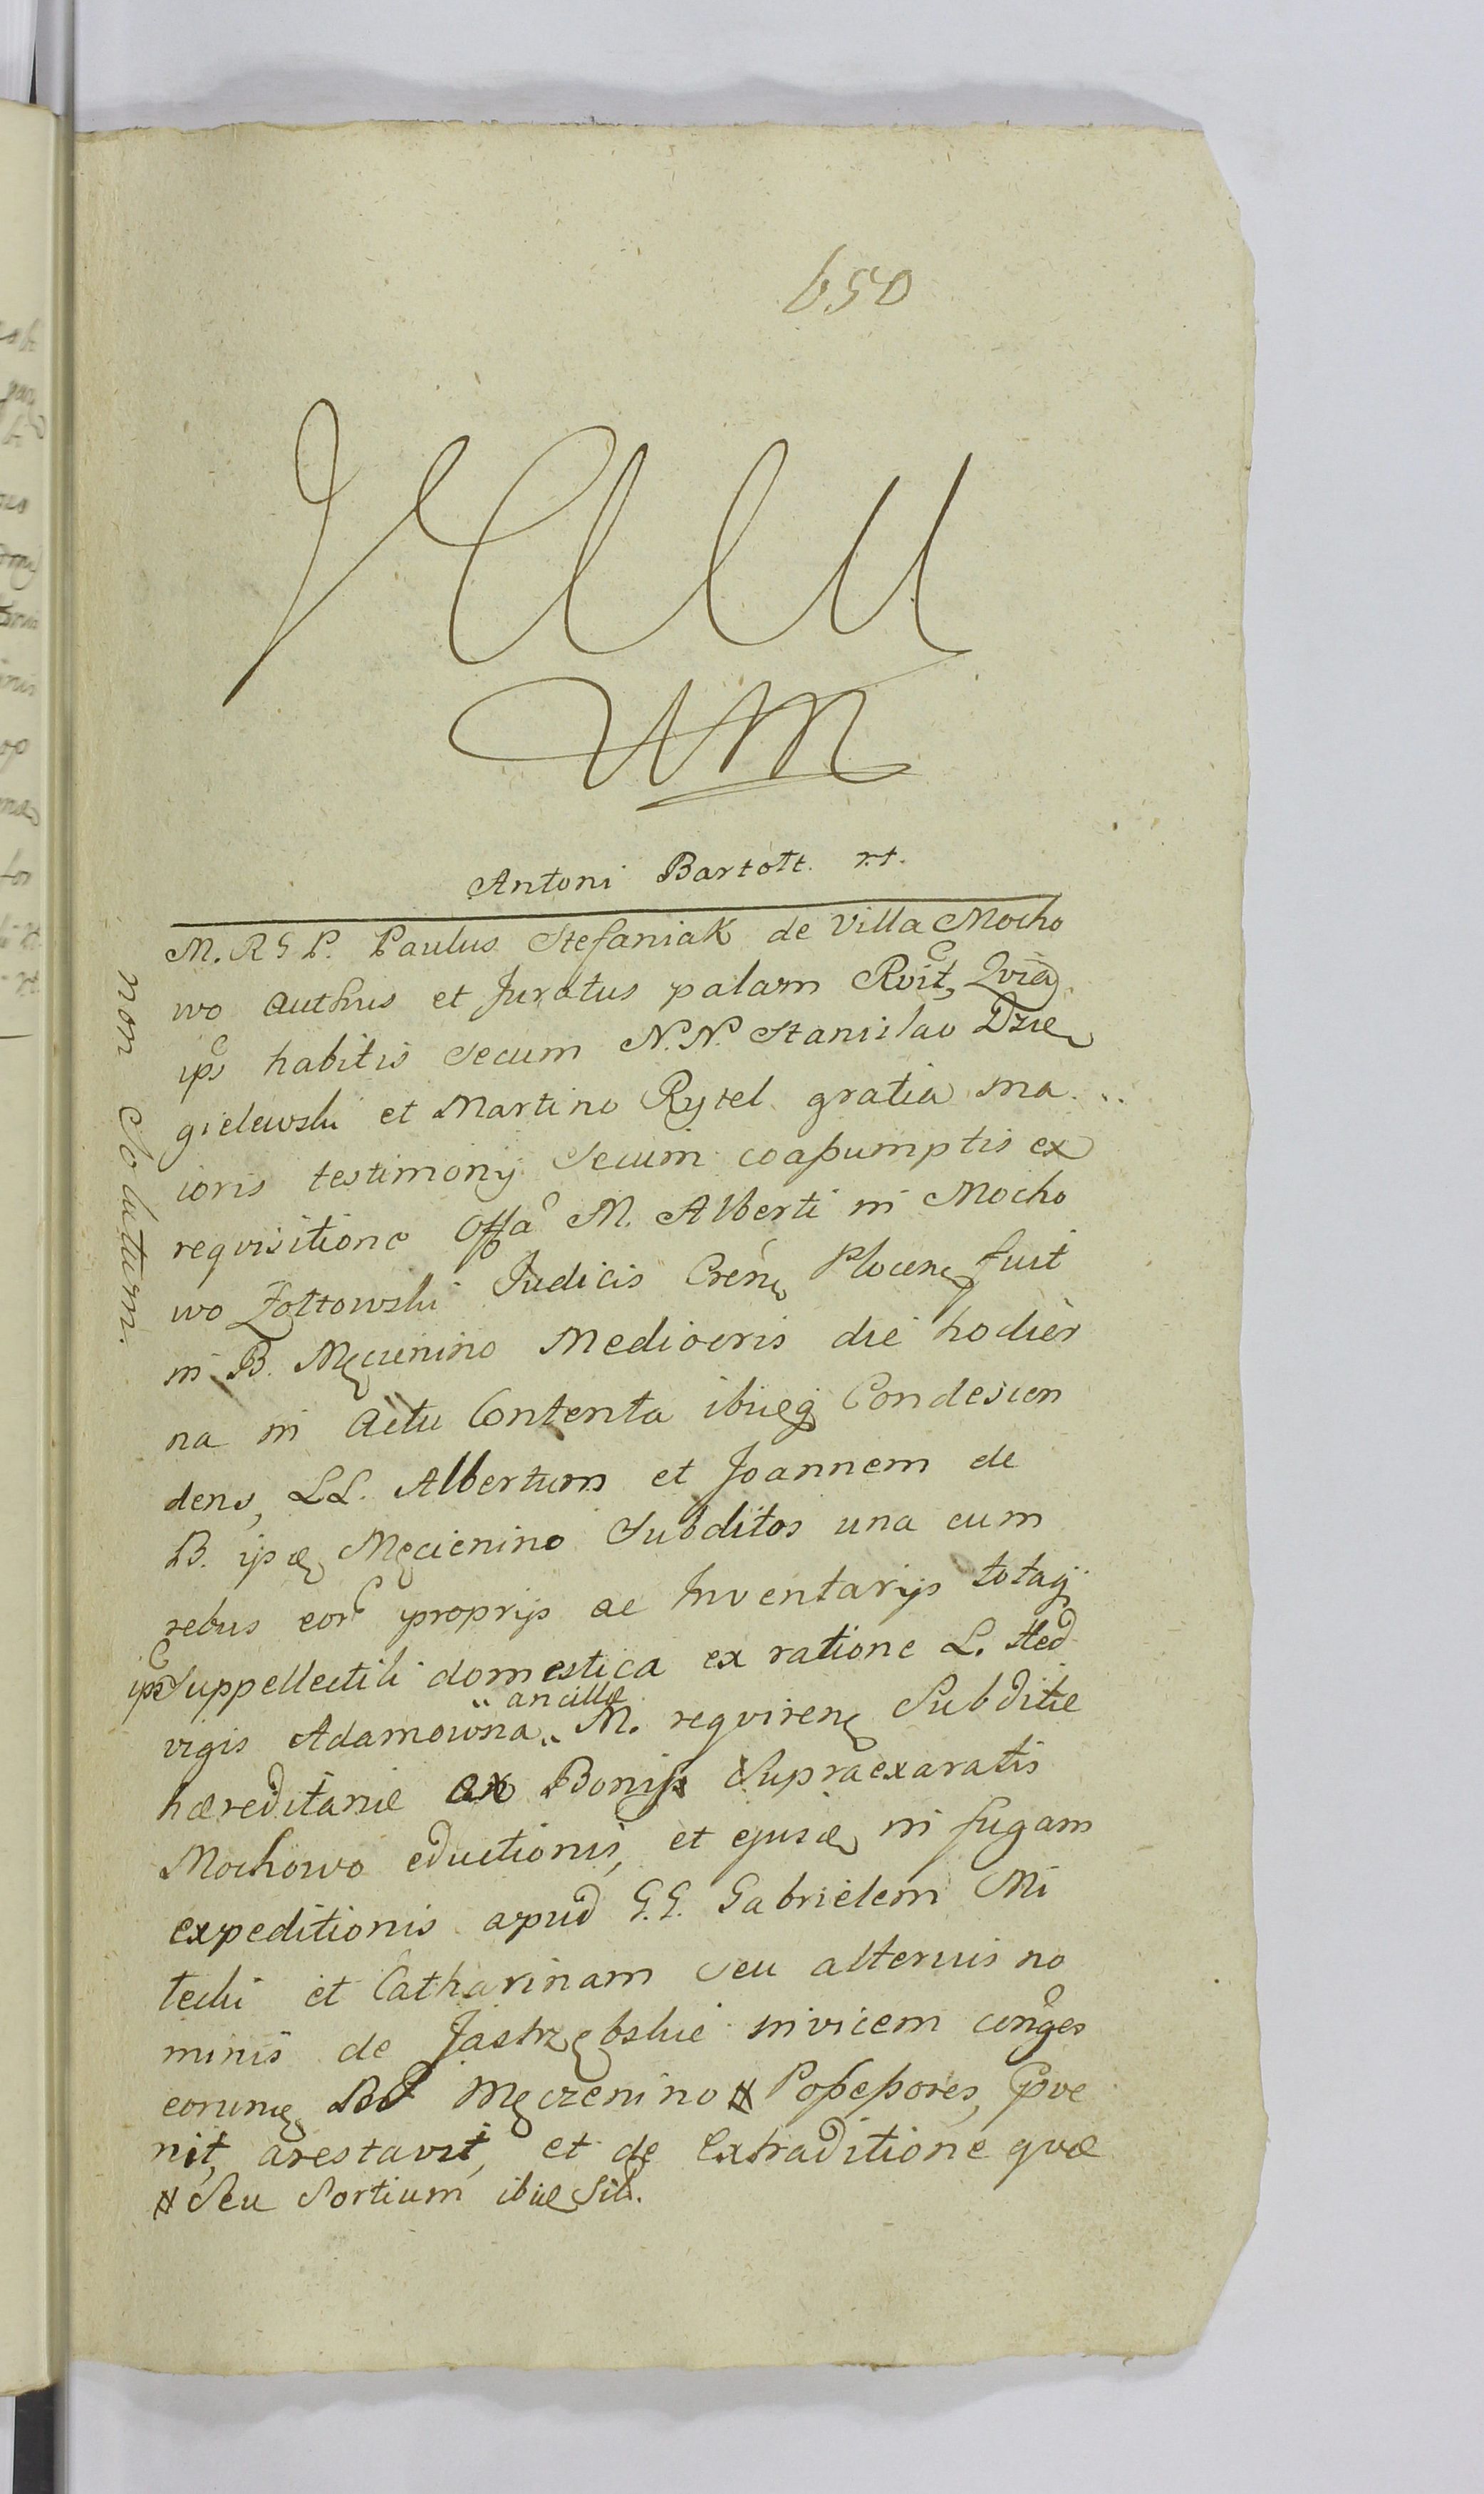 650
Antoni Bartołt. rt.
M. R G P. Paulus Stefaniak de Villa Mocho
wo authus et Juratus palam Rvit, Qvia
ips habitis secum N.N. Stanislao Dzie
gielewski et Martino Rytel gratia ma
ioris testimonij secum coaßumptis ex
reqvisitione Offa M. Alberti in Mocho
wo Zołtowski Judicis Cren Plocen fuit
in B. Męcienino Mediocris die hodier
na in actu Contenta ibiq Condescen
dens, LL. Albertum et Joannem de
B. ips Męcienino Subditos una cum
rebus eor proprijs ac Inventarijs totaq
ips Suppellectili domestica ex ratione L. Hed
ancillæ
vigis Adamowna M. reqviren Subditæ
hæreditariæ ex Bonis Supraexaratis
Mochowo eductionis, et ejus in fugam
expeditionis apud G.G. Gabrielem Mi
tecki et Catharinam seu alterius no
minis de Jastrzębskie invicem conges
eorum Męczenino Poßeßores, pve
nit, arestavit, et de extraditione qvæ
Seu Sortium ibi Sit.
non Solutum.